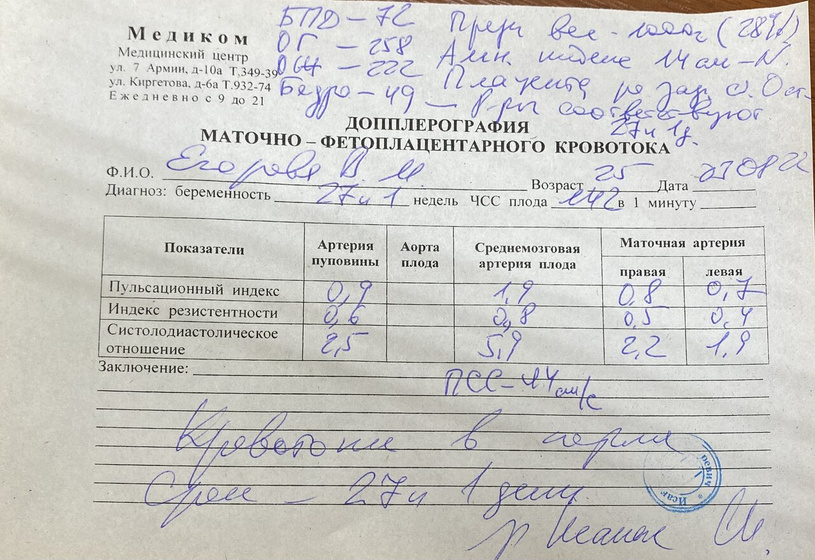 Медиком
Медицинский центр
ул. 7 Армии, д-10а Т.349-39
ул. Киргетова, д-6а Т.932-74
Ежедневно с 9 до 21
БПД – 72 Пред вес - 1000г (28%)
ОГ – 258 Амн. индекс 14 см – N.
ОЖ – 222 Плацента по зад. ст. 0 ст.
Бедро – 49 – Р-ры соответствуют
27 н 1 д.
ДОППЛЕРОГРАФИЯ
МАТОЧНО – ФЕТОПЛАЦЕНТАРНОГО КРОВОТОКА
Ф.И.О. Егорова В. И. Возраст 25 Дата 23 08 22
Диагноз: беременность 27 и 1 недель ЧСС плода 142 в 1 минуту
Показатели Артерия пуповины Аорта плода Среднемозговая артерия плода Маточная артерия
правая левая
Пульсационный индекс 0,9 1,9 0,8 0,7
Индекс резистентности 0,6 0,8 0,5 0,4
Систолодиастолическое отношение 2,5 5,9 2,2 1,9
Заключение:
ПСС – 44 см/с
Кровотоки в норме
Срок – 27 н 1 день